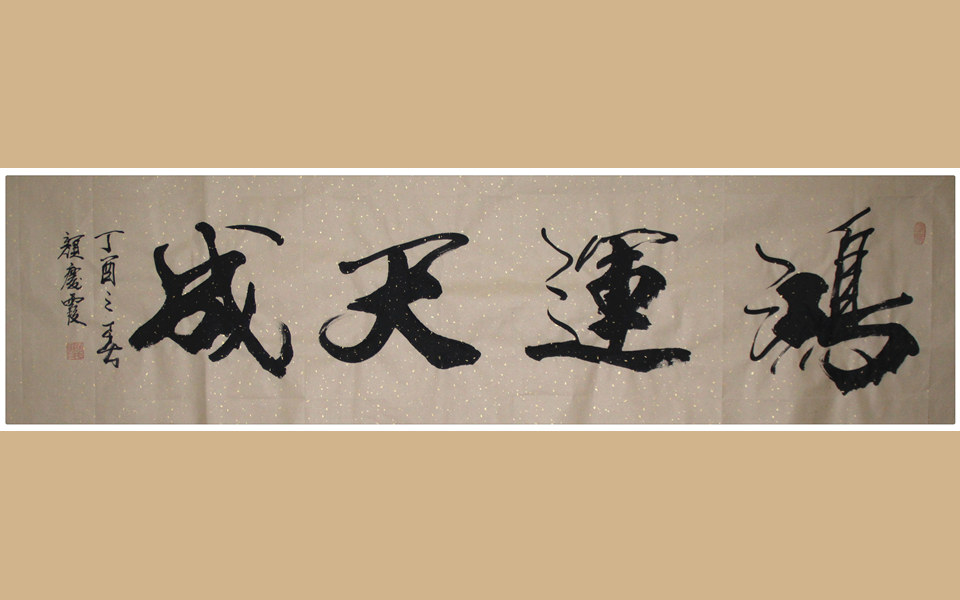 鴻運天成
丁酉之春
顏慶霞